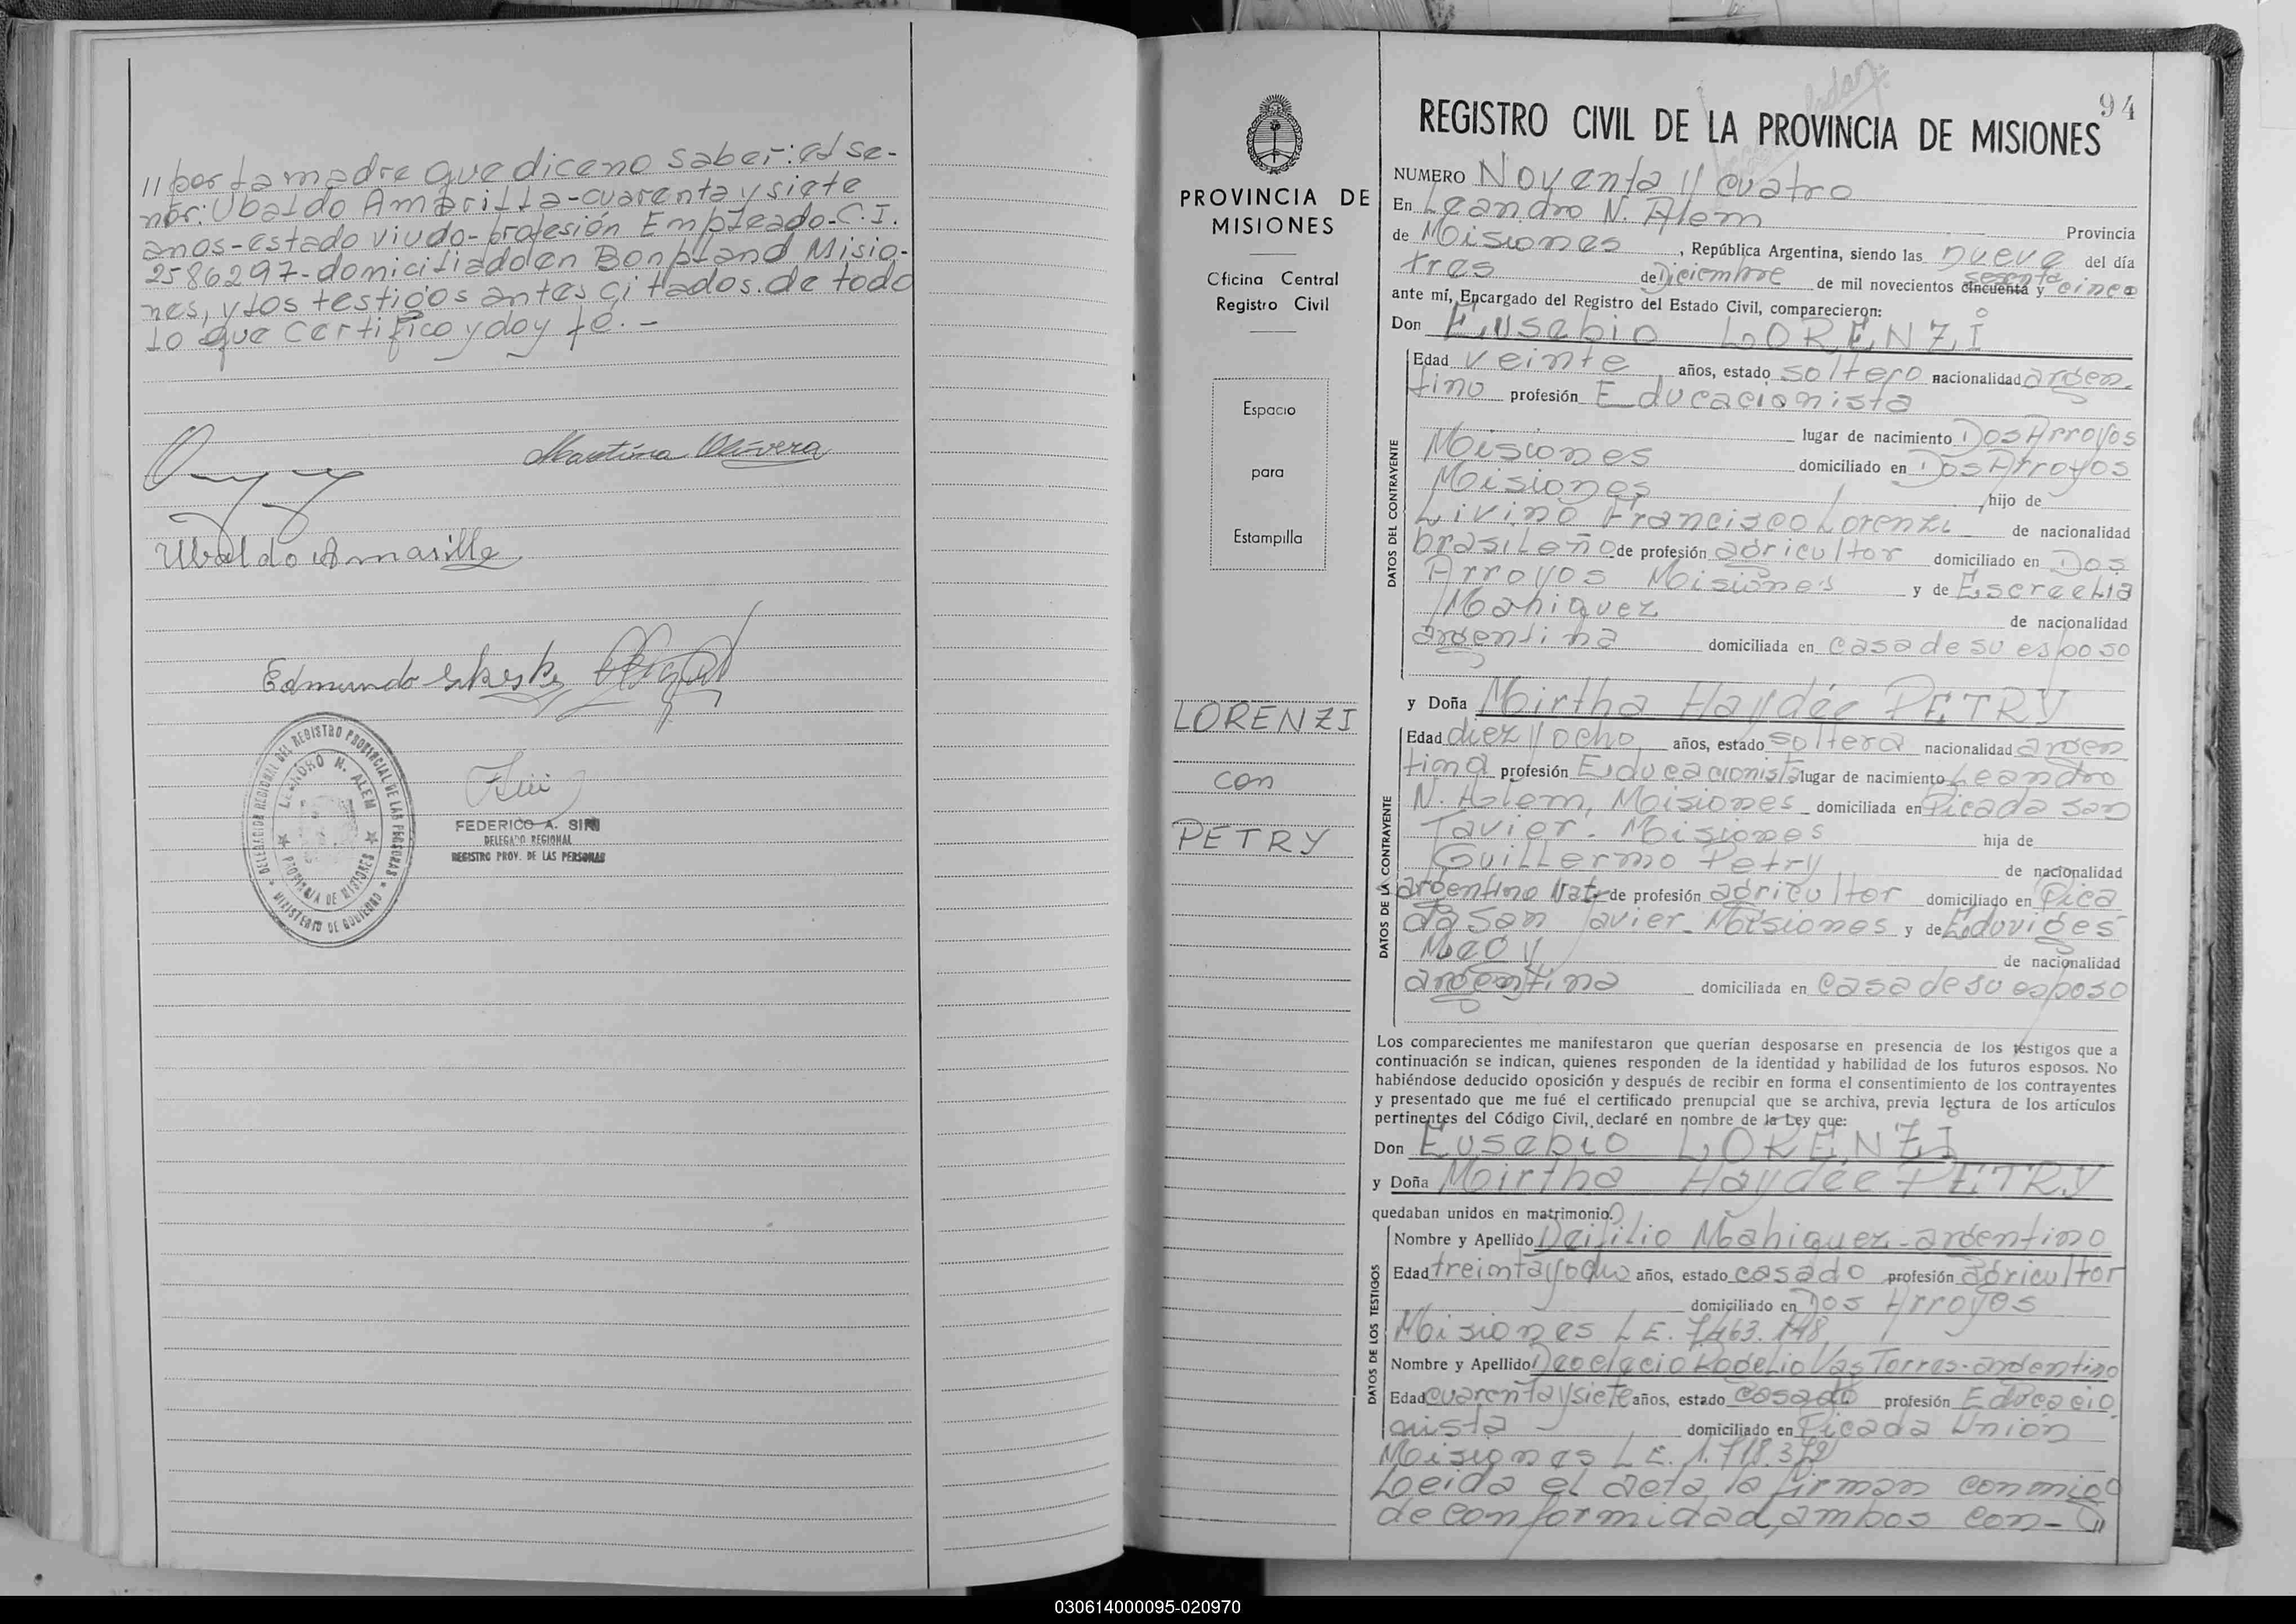 // por la madre que dice no saber: el se-
ñor: Ubaldo Amarilla - cuarenta y siete
años - estado viudo - profesión Empleado - C.I.
2586297 - domiciliado en Bonpland Misio-
nes, y los testigos antes citados. de todo
lo que certifico y doy fe. -
Martina Olivera
Ubaldo Amarilla
Edmundo
DELEGACION REGIONAL DEL REGISTRO PROVINCIAL DE LAS PERSONAS
LEANDRO N. ALEM
PROVINCIA DE MISIONES
MINISTERIO DE GOBIERNO
FEDERICO A. SIRI
DELEGADO REGIONAL
REGISTRO PROV. DE LAS PERSONAS
PROVINCIA DE
MISIONES
Oficina Central
Registro Civil
Espacio
para
Estampilla
LORENZI
con
PETRY
94
REGISTRO CIVIL DE LA PROVINCIA DE MISIONES
NUMERO Noventa y cuatro
En Leandro N. Alem Provincia
de Misiones, República Argentina, siendo las nueve del día
tres de Diciembre de mil novecientos cincuenta sesenta y cinco
ante mí, Encargado del Registro del Estado Civil, comparecieron:
Don Eusebio LORENZI
DATOS DEL CONTRAYENTE
Edad veinte años, estado soltero nacionalidad argen-
tino profesión Educacionista
lugar de nacimiento Dos Arroyos
Misiones domiciliado en Dos Arroyos
Misiones hijo de
Livino Francisco Lorenzi de nacionalidad
brasileño de profesión agricultor domiciliado en Dos
Arroyos Misiones y de Escreelia
Mahiquez de nacionalidad
argentina domiciliada en casa de su esposo
y Doña Mirtha Haydée PETRY
DATOS DE LA CONTRAYENTE
Edad diez y ocho años, estado soltera nacionalidad argen
tina profesión Educacionista lugar de nacimiento Leandro
N. Alem, Misiones domiciliada en Picada San
Javier. Misiones hija de
Guillermo Petry de nacionalidad
argentino Nat. de profesión agricultor domiciliado en Pica
da San Javier - Misiones y de Eduviges
de nacionalidad
argentina domiciliada en casa de su esposo
Los comparecientes me manifestaron que querían desposarse en presencia de los testigos que a
continuación se indican, quienes responden de la identidad y habilidad de los futuros esposos. No
habiéndose deducido oposición y después de recibir en forma el consentimiento de los contrayentes
y presentado que me fué el certificado prenupcial que se archiva, previa lectura de los artículos
pertinentes del Código Civil, declaré en nombre de la Ley que:
Don Eusebio LORENZI
y Doña Mirtha Haydée PETRY
quedaban unidos en matrimonio.
DATOS DE LOS TESTIGOS
Nombre y Apellido Deifilio Mahiquez - argentino
Edad treinta y ocho años, estado casado profesión agricultor
domiciliado en Dos Arroyos
Misiones L.E. 7.463.148
Nombre y Apellido Deoclecio Rogelio Vas Torres - argentino
Edad cuarenta y siete años, estado casado profesión Educacio
nista domiciliado en Picada Unión
Misiones L.E. 1.718.372
Leida el acta la firman conmigo
de conformidad, ambos con- //
030614000095-020970